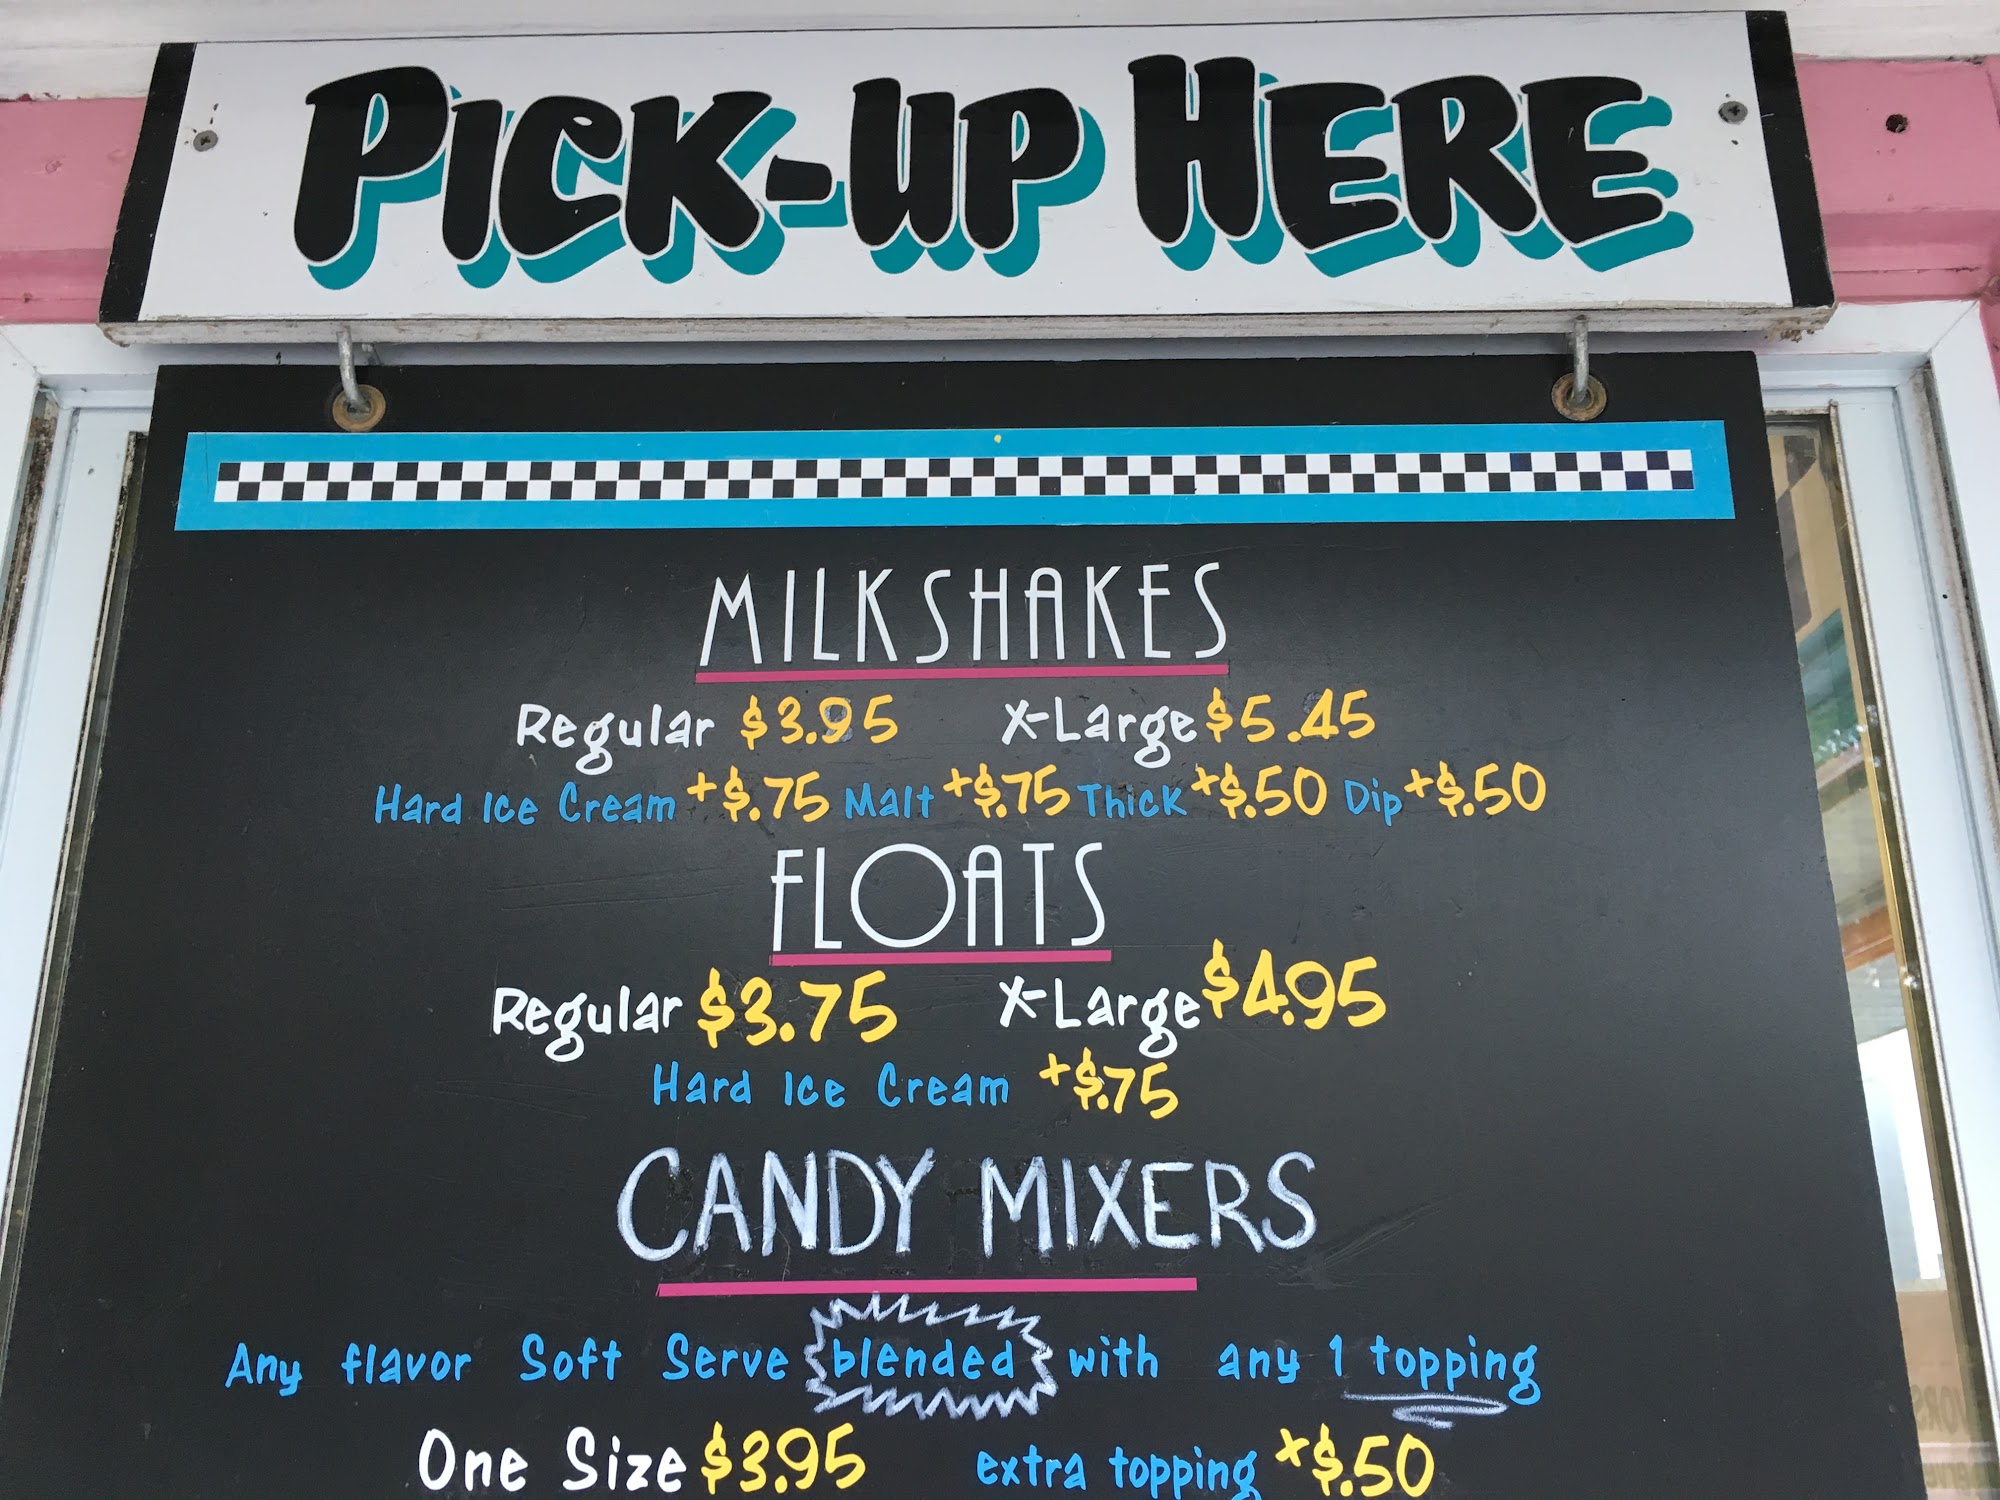 PICK-UP HERE
MILKSHAKES
Regular $3.95 X-Large $5.45
Hard Ice Cream +$.75 Malt +$.75 Thick +$.50 Dip +$.50
FLOATS
Regular $3.75 X-Large $4.95
Hard Ice Cream +$.75
CANDY MIXERS
Any flavor Soft Serve blended with any 1 topping
One Size $3.95 extra topping +$.50